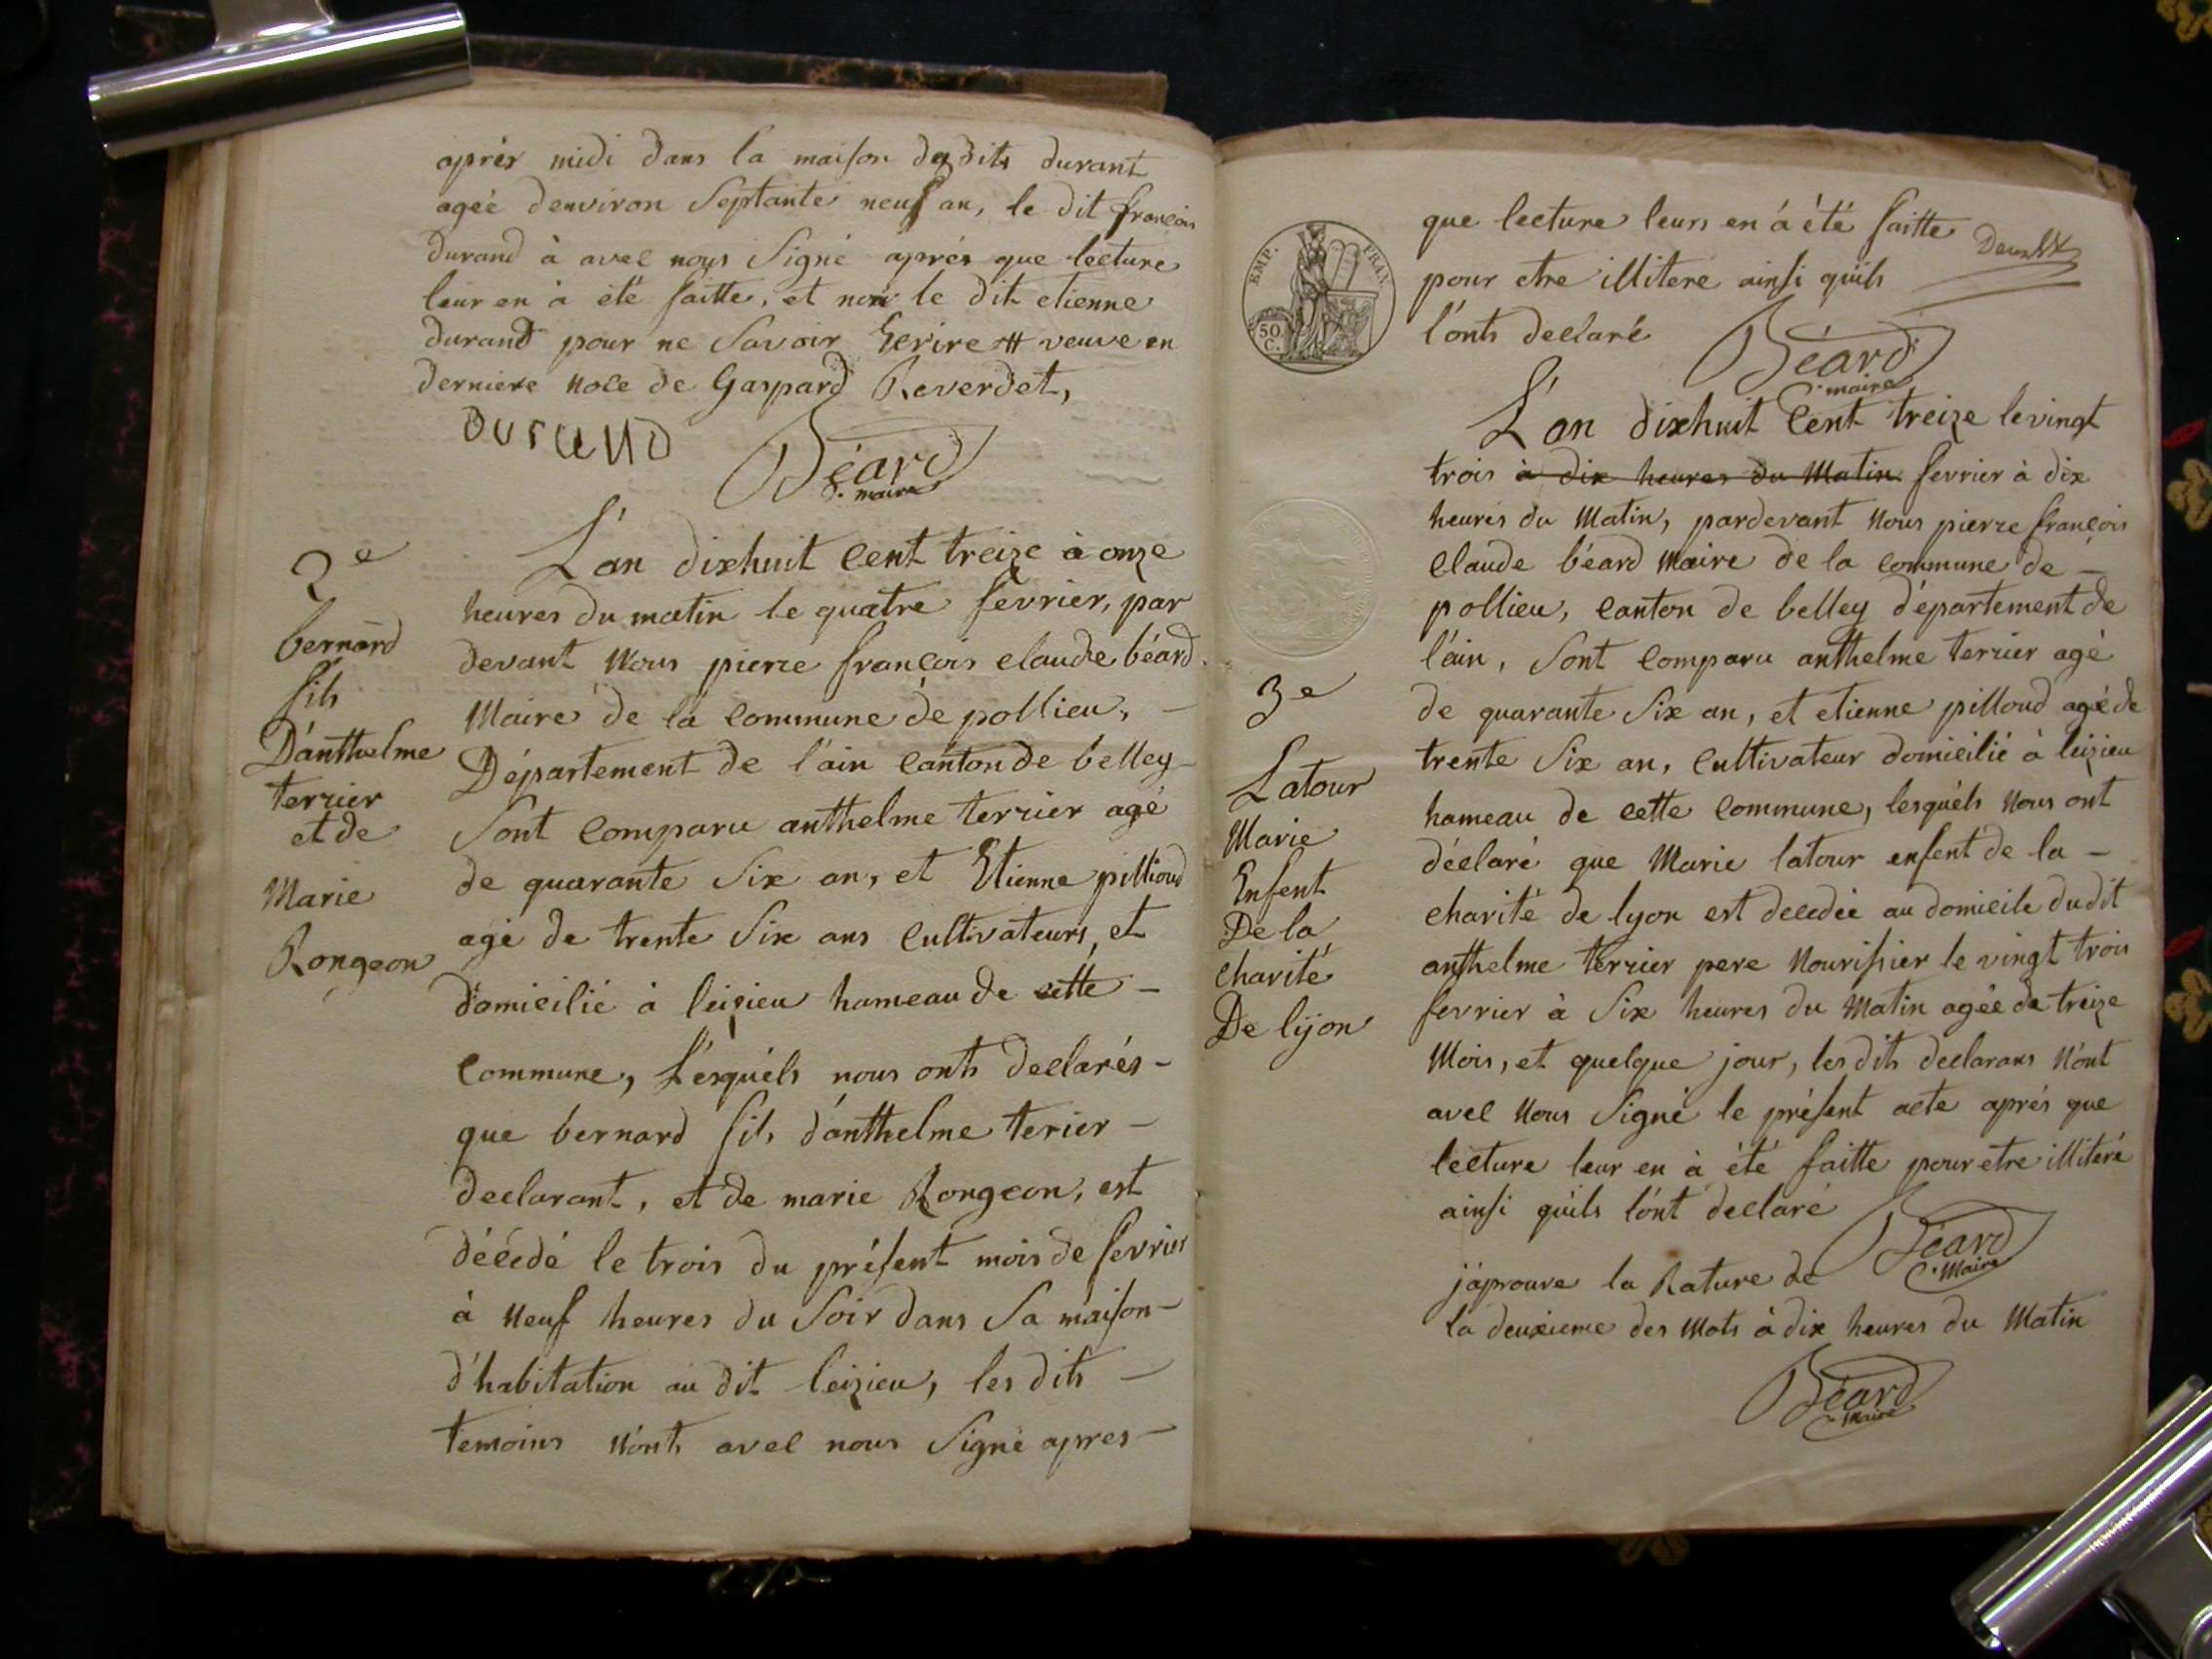 après midi dans la maison desdits durant
ageé denviron Septante neuf an, le dit françois
durand à avec nous Signé aprés que lecture
leur en à été faitte, et non le dit etienne
durand pour ne Savoir Ecrire # veuve en
derniere noce de Gaspard Reverdet,
Durand
Béard
maire
2e
bernard
fils
D'anthelme
terrier
et de
Marie
Rongeon
L'an dixhuit cent treize à onze
heures du matin le quatre fevrier, par
devant Nous pierre françois claude béard
Maire de la commune de pollieu, –
Département de l'ain canton de belley –
Sont comparu anthelme terrier agé
de quarante Six an, et Etienne pilloud
agé de trente Six ans cultivateurs, et
domicilié à leizieu hameau de cette –
commune, Lesquéls nous onts declarés –
que bernard fils d'anthelme terier –
declarant, et de marie Rongeon, est
décédé le trois du présent mois de fevrier
à Neuf heures du Soir dans Sa maison –
d'habitation au dit leizieu, les dits –
temoins N'onts avec nous Signé apres –
EMP. FRAN.
50
C.
que lecture leurs en á été faitte
pour etre illiteré ainsi quils
l'onts declaré
Béard
maire
3e
Latour
Marie
Enfent
De la
charité
De lyon
L'an dixhuit Cent treize le vingt
trois à dix heures du Matin fevrier à dix
heures du Matin, pardevant Nous pierre françois
claude béard Maire de la commune de –
pollieu, canton de belley département de
l'ain, Sont comparu anthelme terrier agé
de quarante Six an, et etienne pilloud agé de
trente Six an, cultivateur domicilié à leizieu
hameau de cette commune, lesquéls Nous ont
déclaré que Marie latour enfent de la –
charité de lyon est decedée au domicile dudit
anthelme terrier pere Nourissier le vingt trois
fevrier à Six heures du Matin agée de treize
Mois, et quelque jour, les dits declarans N'ont
avec Nous Signé le présent acte aprés que
lecture leur en à été faitte pour etre illiteré
ainsi quils l'ont declaré
Béard
Maire
j'aprouve la Rature de
la deuxieme des Mots à dix heures du Matin
Béard
Maire